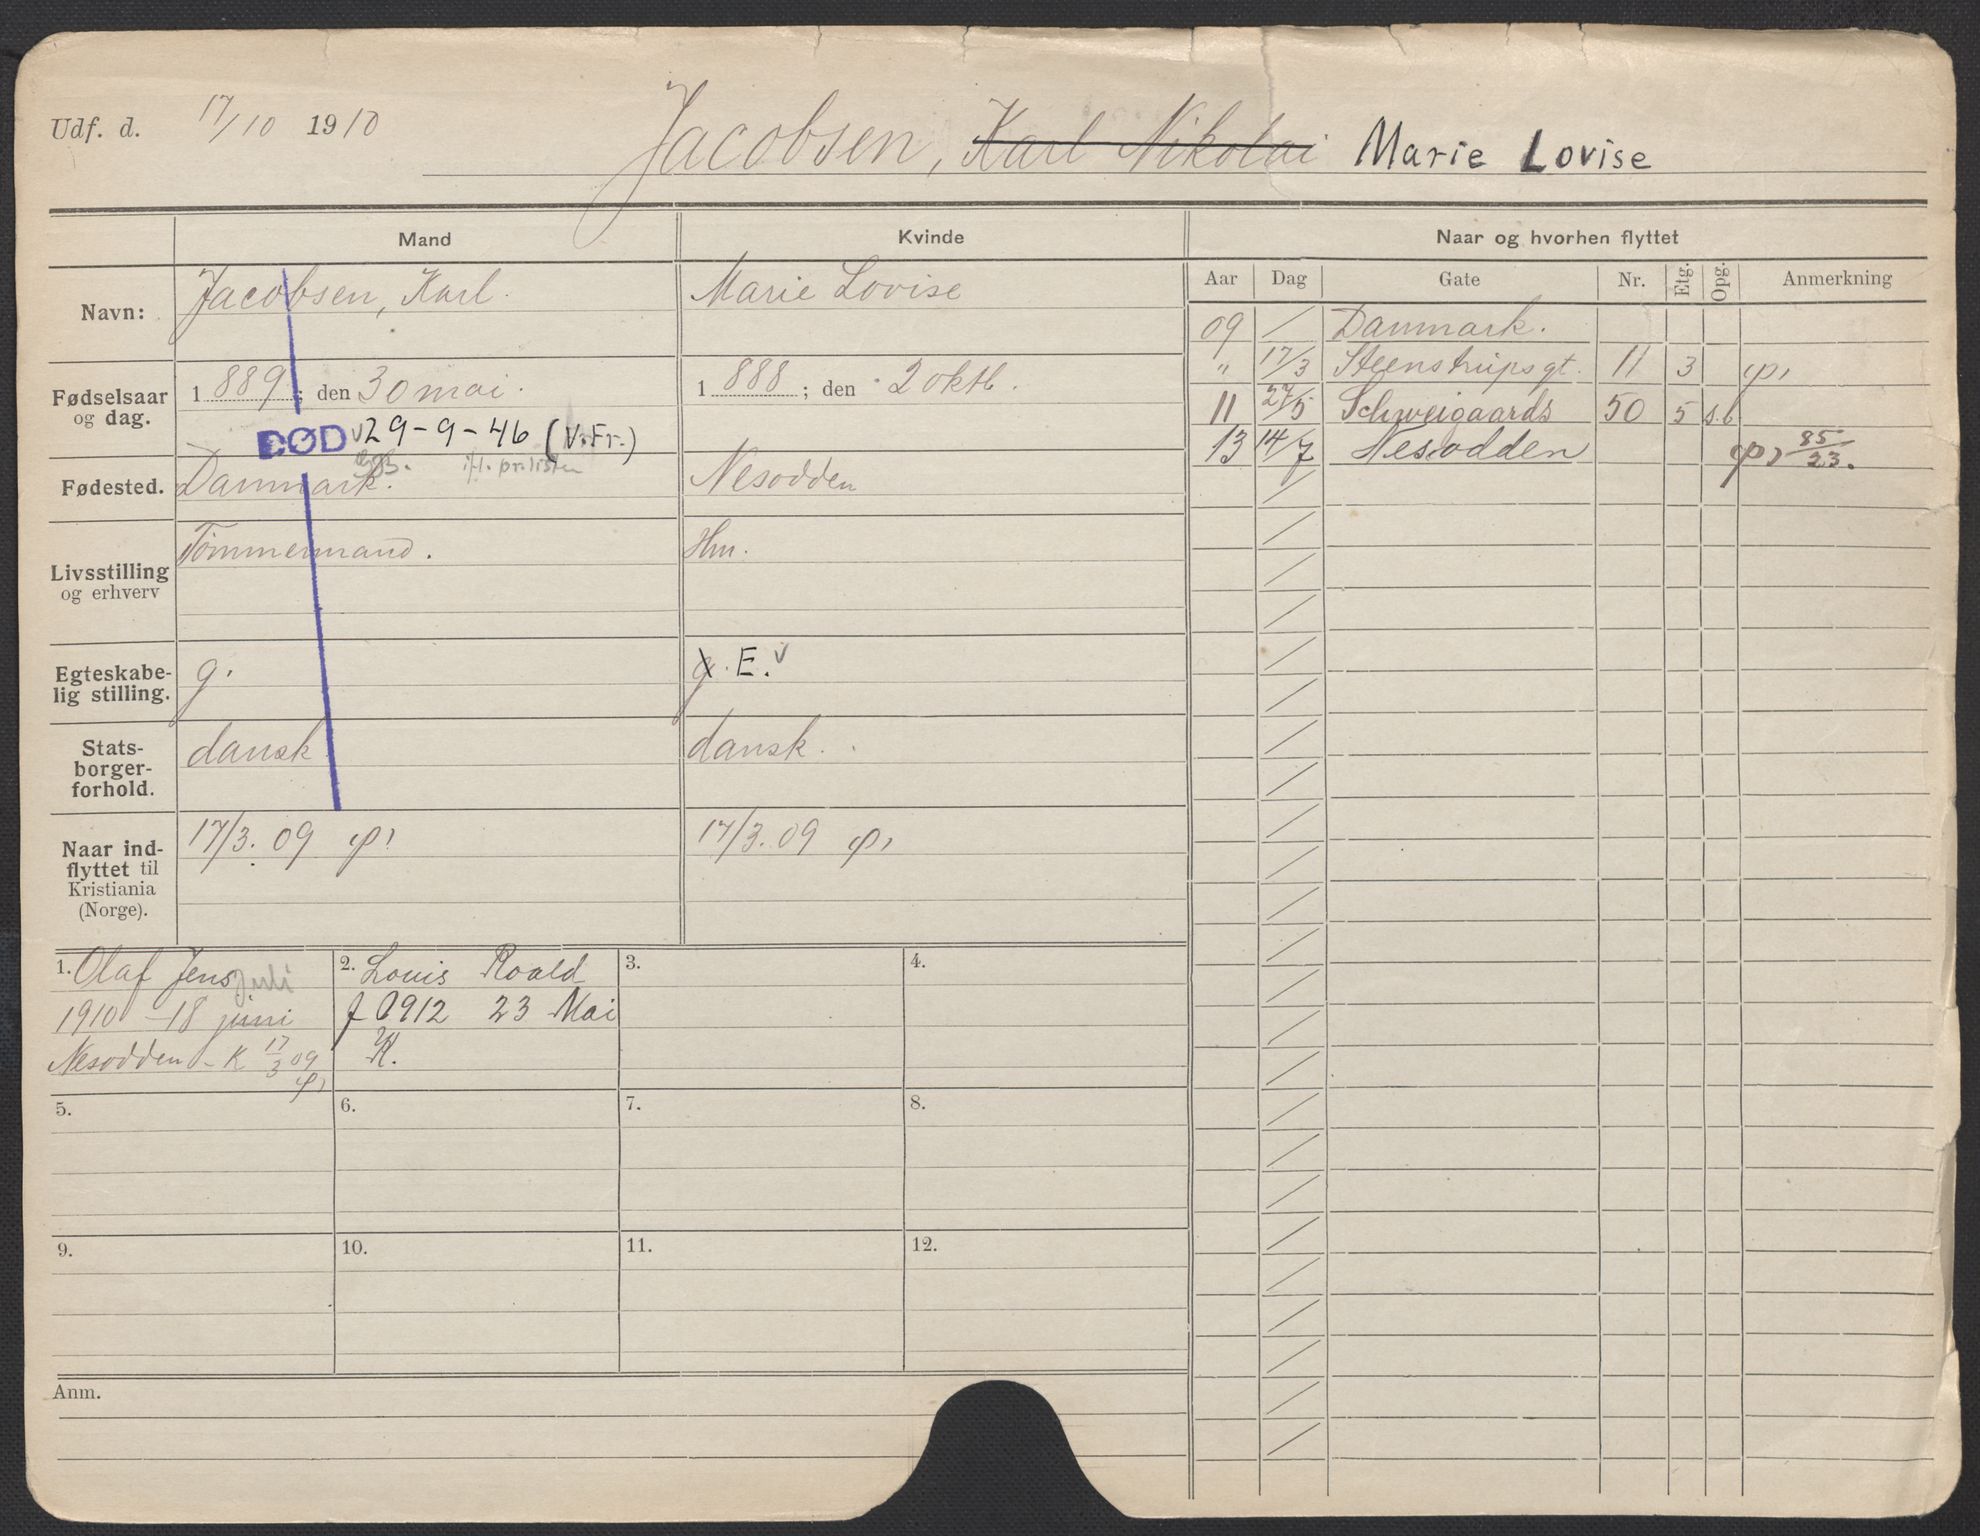 Udf. d. 17/10 1910
Jacobsen, Karl Nikolai Marie Lovise
Mand
Kvinde
Navn:
Jacobsen, Karl.
Marie Lovise
Fødselsaar
og dag.
1889; den 30 mai.
1888; den 2 oktb.
DØD 29-9-46 (V.Fr.)
Fødested.
Danmark.
Nesodden
Livsstilling
og erhverv
Tømmermand.
Hm.
Egteskabe-
lig stilling.
g.
g. E. v
Stats-
borger-
forhold.
dansk
dansk.
Naar ind-
flyttet til
Kristiania
(Norge).
17/3. 09
17/3. 09
1. Olaf Jens juli
1910 - 18 juni
Nesodden - K 17/3 09
2. Louis Roald
f 1912 23 Mai
K.
3.
4.
5.
6.
7.
8.
9.
10.
11.
12.
Anm.
Naar og hvorhen flyttet
Aar Dag Gate Nr. Etg. Opg. Anmerkning
09 / Danmark.
" 17/3 Steenstrupsgt. 11 3
11 27/5 Schweigaards 50 5 s.b
13 14/7 Nesodden 85/23.